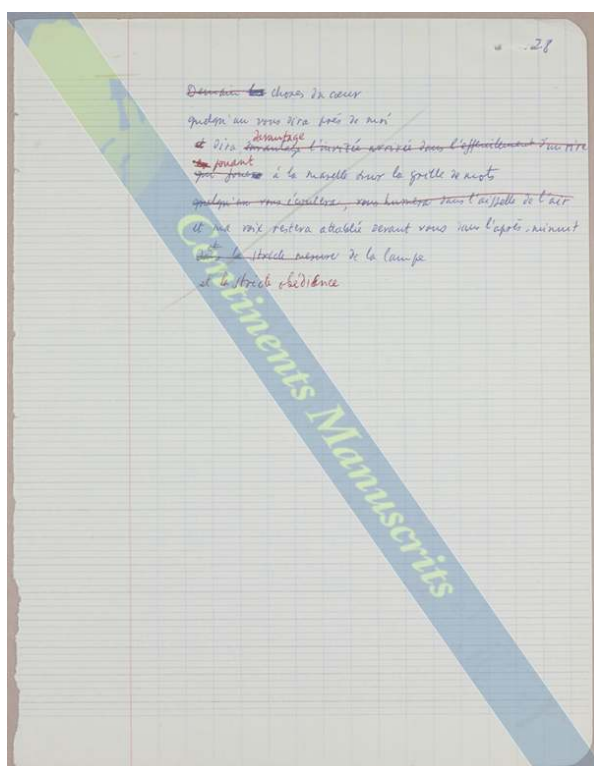 28
Demain les choses du cœur
quelqu'un vous dira près de moi
davantage
et dira davantage l'invitée avivée dans l'effeuillement d'un rire
jouant
qui joue à la marelle sur la grille de mots
quelqu'un vous écoutera, vous humera dans l'aisselle de l'air
et ma voix restera attablée devant vous dans l'après-minuit
la stricte mesure de la lampe
et la stricte obédience
Continents Manuscrits